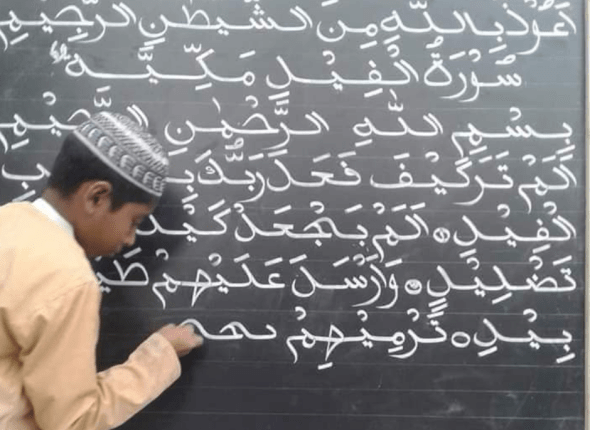 اَعُوْذُ بِاللّٰهِ مِنَ الشَّيْطٰنِ الرَّجِيْمِ
سُوْرَةُ الْفِيْلِ مَكِّيَّة
بِسْمِ اللّٰهِ الرَّحْمٰنِ الرَّحِيْمِ
اَلَمْ تَرَكَيْفَ فَعَلَ رَبُّكَ بِ ب
الْفِيْلِ اَلَمْ يَجْعَلْ كَيْدَ
تَضْلِيْلٍ وَّاَرْسَلَ عَلَيْهِمْ طَيْ
بِيْلَ تَرْمِيْهِمْ بحج